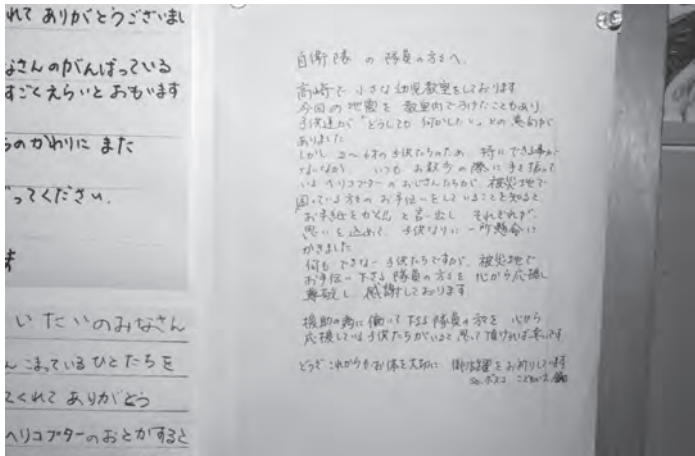 れて ありがとうございまし
なさんのがんばっている
すごくえらいとおもいます
のかわりに また
ってください.
いたいのみなさん
こまっているひとたちを
てくれて ありがとう
ヘリコプターのおとがすると
自衛隊 の 隊員の方々へ
高崎で 小さな幼児教室をしております
今回の地震を 教室内でうけたこともあり
子供達が「どうしても 何かしたい」との
ありました
しかし 2〜6才の子供たちのため 特にできる事が
いつも お散歩の際に 手を振って
いる ヘリコプターの おじさんたちが、被災地で
困っている方々の お手伝いをしていることを知ると
お手紙をかくと 言い出し それぞれが、
思いを込めて 子供なりに 一所懸命に
かきました
何も できない 子供たちですが、被災地で
お手伝い 下さる 隊員の方々を 心から応援し
尊敬し 感謝しております
援助の為に 働いて下さる 隊員の方を 心から
応援している子供たちがいると 思って頂ければ幸いです
どうぞ これからも お体を大切に 御活躍を お祈りしています